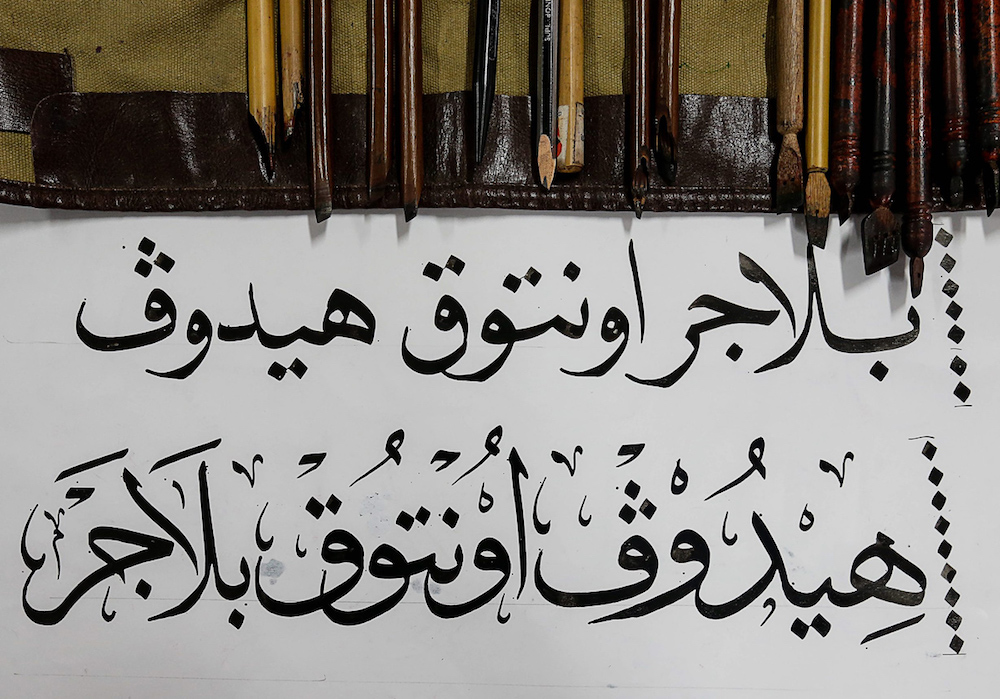 بلاجر اونتوق هيدوڤ
هِيْدُوْڤ اُوْنتُوق بلَاجَر